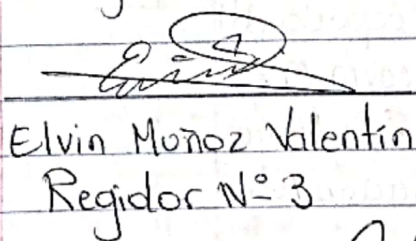 Elvin Muñoz Valentín
Regidor Nº 3